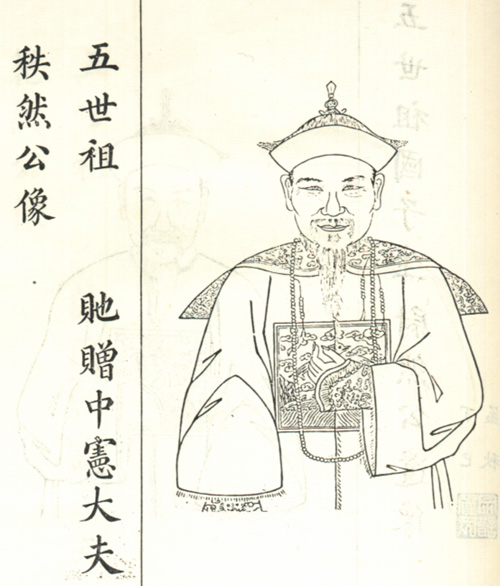 五世祖 貤贈中憲大夫
秩然公像